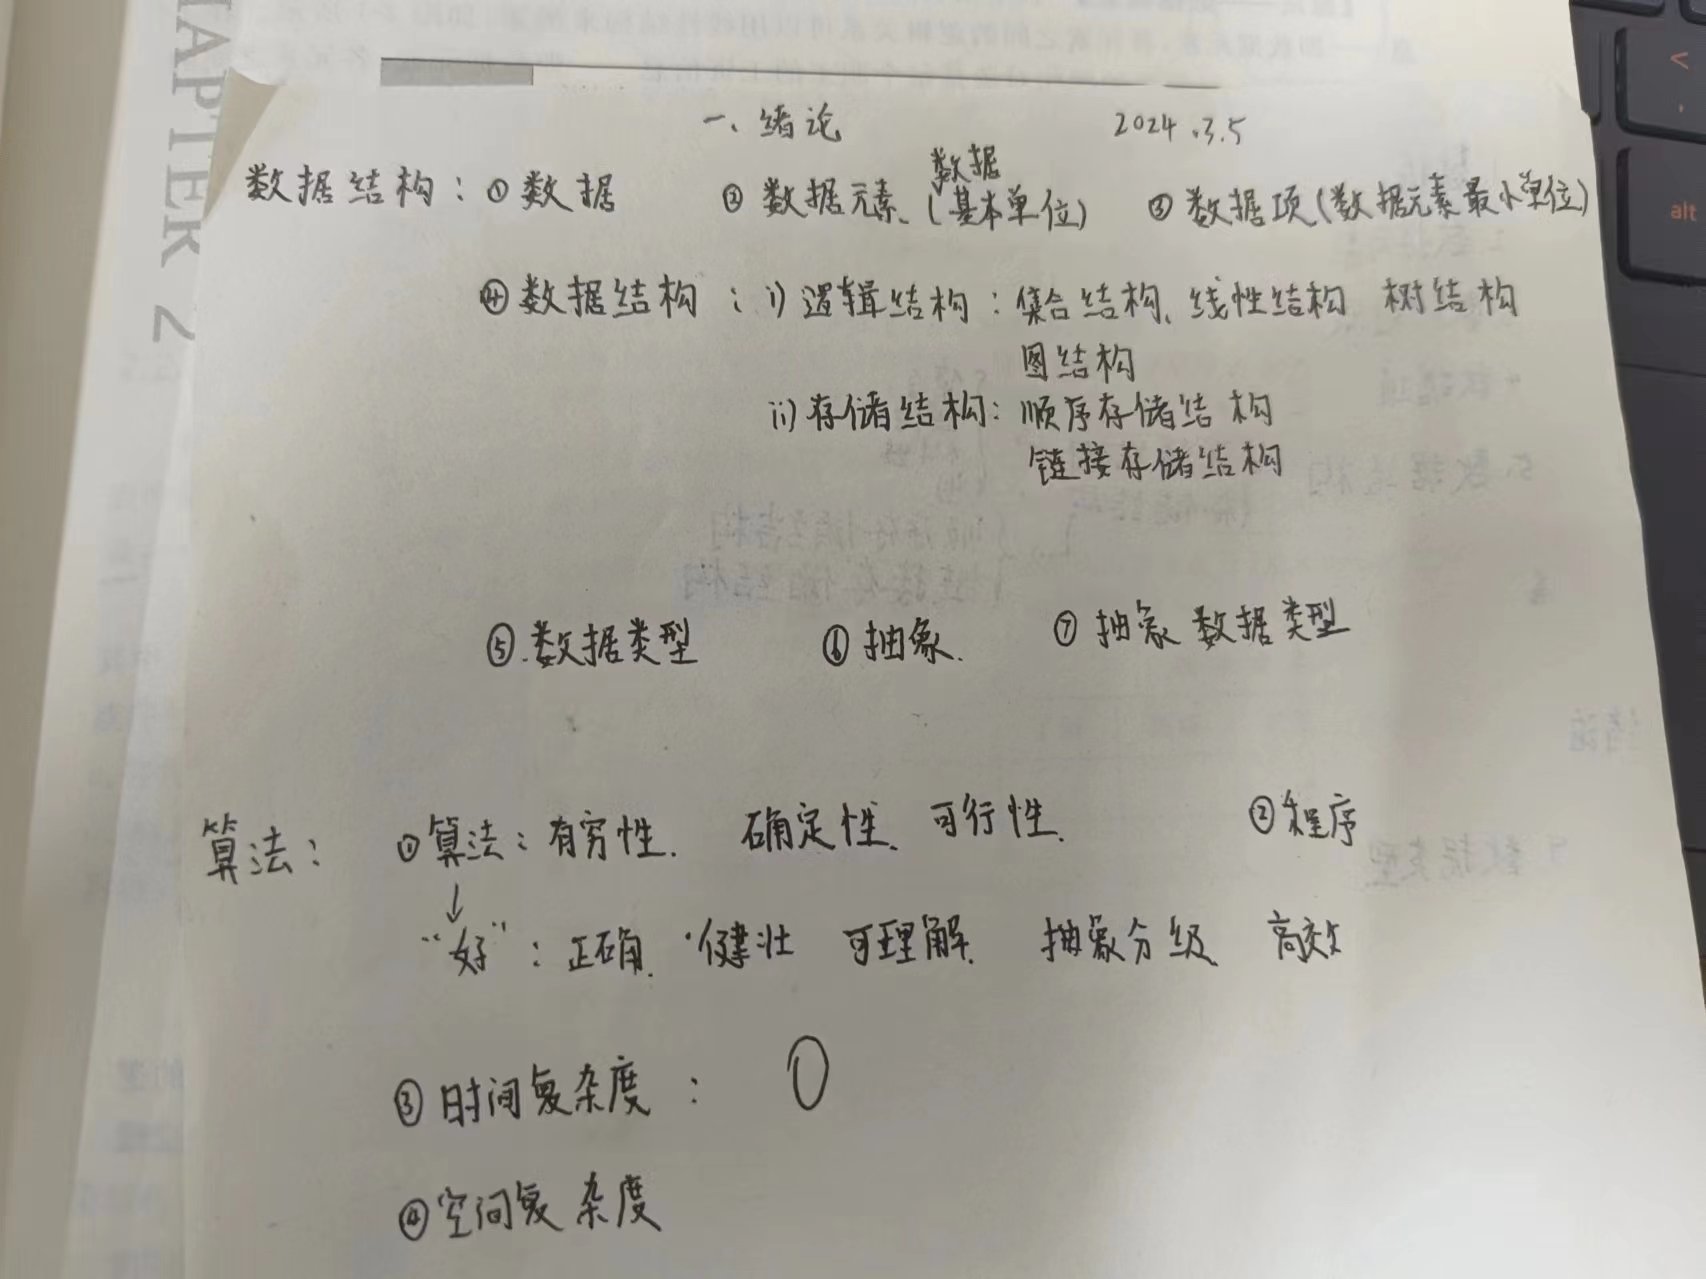 HAPTER 2
一、绪论 2024.3.5
数据结构：①数据 ②数据元素、(数据基本单位) ③数据项(数据元素最小单位)
④数据结构：i) 逻辑结构：集合结构、线性结构 树结构
图结构
ii) 存储结构：顺序存储结构
链接存储结构
⑤.数据类型 ⑥抽象. ⑦抽象数据类型
算法： ①算法：有穷性. 确定性、可行性. ②程序
↓
“好”：正确. 健壮 可理解. 抽象分级、高效
③时间复杂度： O
④空间复杂度
<
,
alt